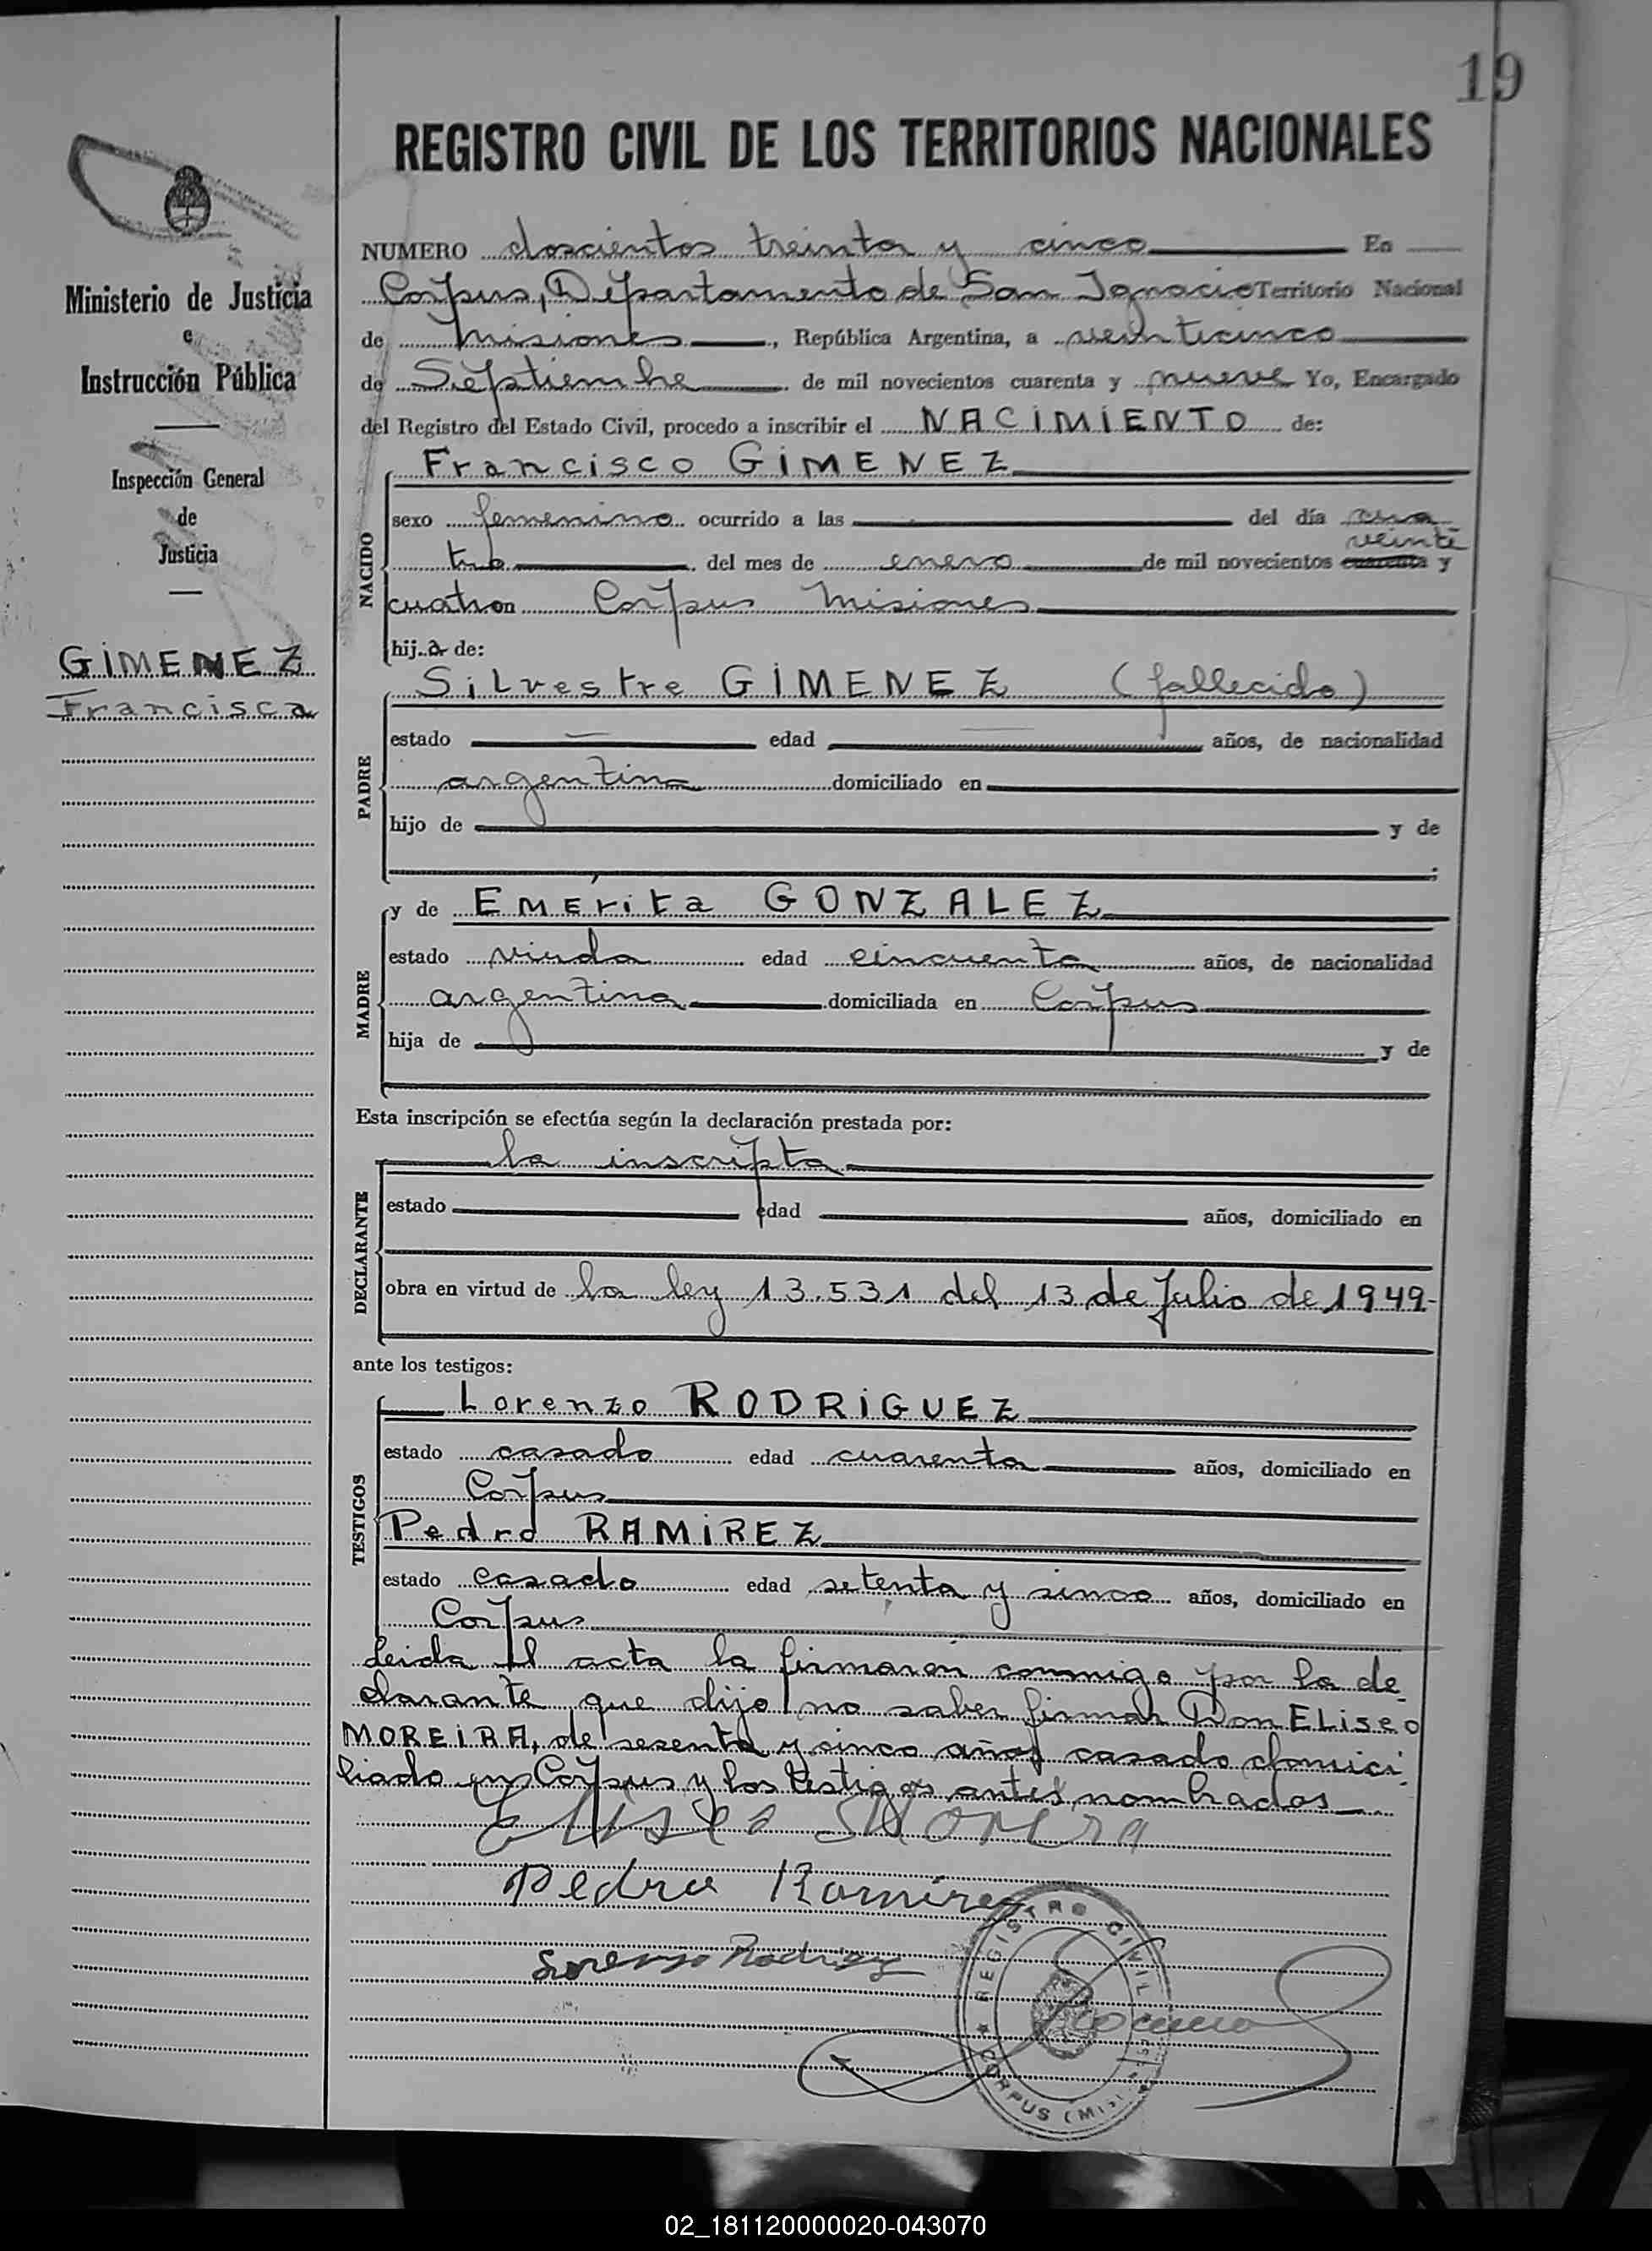 19
REGISTRO CIVIL DE LOS TERRITORIOS NACIONALES
Ministerio de Justicia
e
Instrucción Pública
Inspección General
de
Justicia
GIMENEZ
Francisca
NUMERO doscientos treinta y cinco En
Corpus, Departamento de San Ignacio Territorio Nacional
de Misiones, República Argentina, a veinticinco
de Septiembre de mil novecientos cuarenta y nueve Yo, Encargado
del Registro del Estado Civil, procedo a inscribir el NACIMIENTO de:
Francisco GIMENEZ
NACIDO
sexo femenino ocurrido a las del día cua
veinte
tro del mes de enero de mil novecientos cuarenta y
cuatro en Corpus Misiones
hija de:
Silvestre GIMENEZ (fallecido)
PADRE
estado edad años, de nacionalidad
argentina domiciliado en
hijo de y de
;
y de Emérita GONZALEZ
MADRE
estado viuda edad cincuenta años, de nacionalidad
argentina domiciliada en Corpus
hija de y de
Esta inscripción se efectúa según la declaración prestada por:
la inscripta
DECLARANTE
estado edad años, domiciliado en
obra en virtud de la ley 13.531 del 13 de Julio de 1949-
ante los testigos:
Lorenzo RODRIGUEZ
TESTIGOS
estado casado edad cuarenta años, domiciliado en
Corpus
Pedro RAMIREZ
estado casado edad setenta y sinco años, domiciliado en
Corpus
Leida el acta la firmaron conmigo por la de
clarante que dijo no saber firmar Don Eliseo
MOREIRA, de sesenta y cinco años casado domici
liado en Corpus y los testigos antes nombrados
Eliseo Moreira
Pedro Ramirez
Lorenzo Rodriguez
REGISTRO CIVIL
CORPUS (Mis.)
02_181120000020-043070